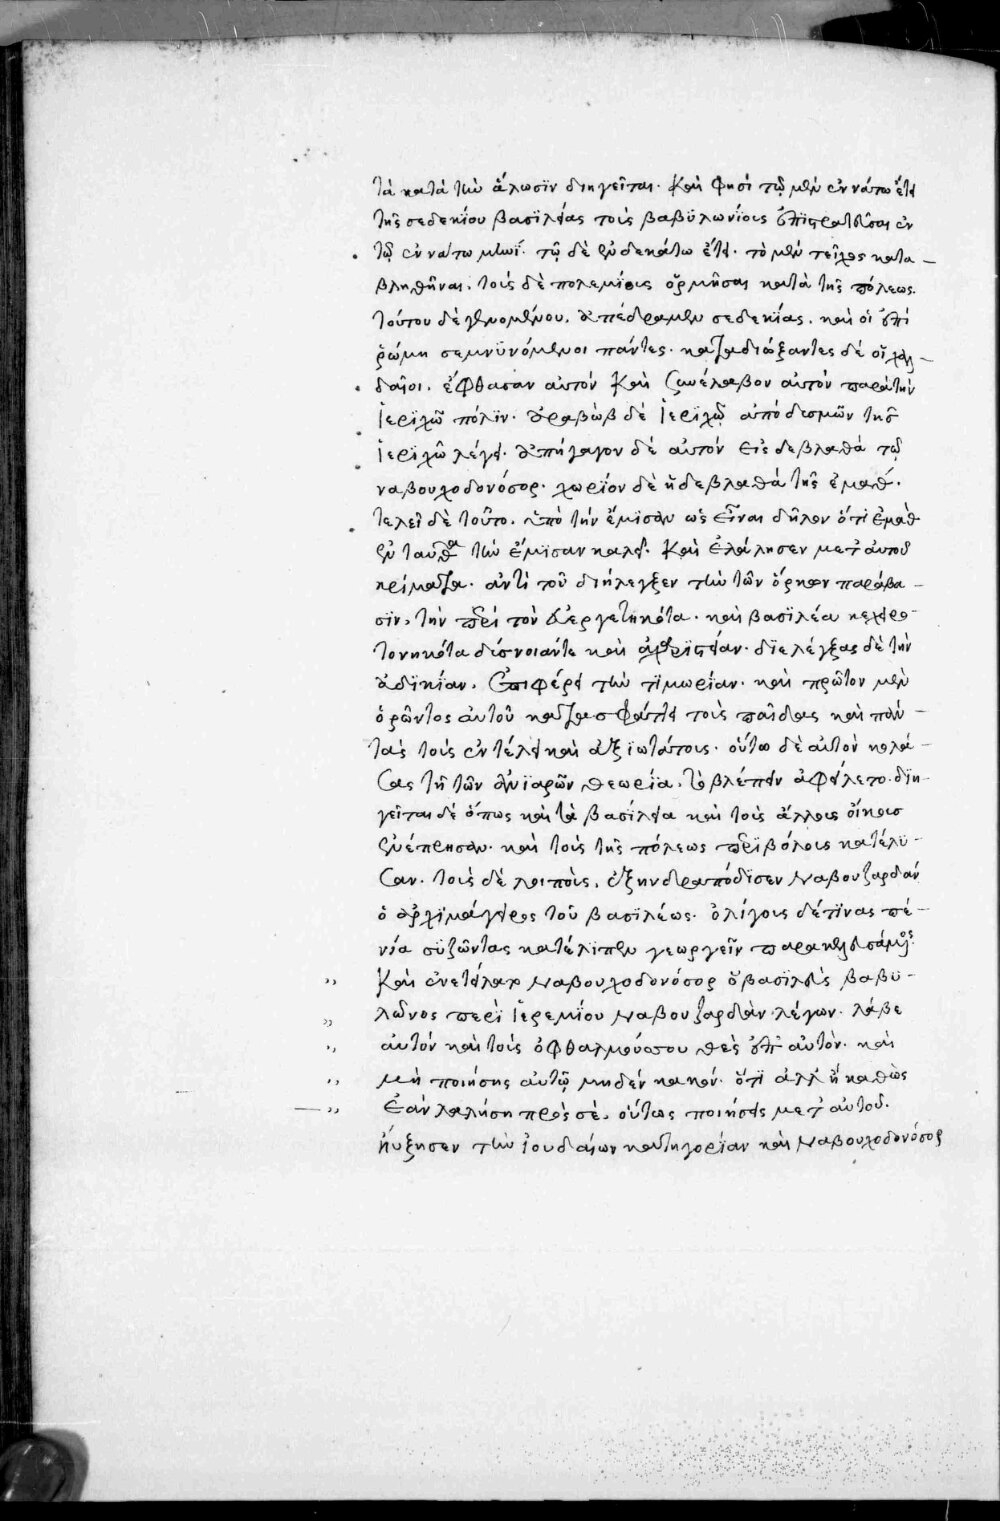 τὰ κατὰ τὴν ἅλωσϊν διηγεῖται· καὶ φησὶ τῷ μὲν ἐννάτω ἔτει
τῆς σεδεκίου βασϊλείας τοὺς βαβϋλωνίους ἐπϊστρατεῦσαι ἐν
τῷ ἐννάτω μηνί· τῷ δὲ ἑνδεκάτω ἔτει· τὸ μὲν τεῖχος κατα-
βληθῆναι· τοὺς δὲ πολεμίους ὁρμῆσαι κατὰ τῆς πόλεως·
τούτου δὲ γενομένου, ἀπέδραμεν σεδεκίας, καὶ οἱ ἐπὶ
ῥώμη σεμνϋνόμενοι πάντες· καταδιώξαντες δὲ οἱ χαλ-
δαῖοι, ἔφθασαν αὐτὸν καὶ συνέλαβον αὐτὸν παρὰ τὴν
ἱερϊχῶ πόλϊν· ἀραβὼβ δὲ ἱερϊχῷ ἀπὸ δεσμῶν τῆς
ἱερϊχῶ λέγει· ἀπήγαγον δὲ αὐτὸν εἰς δεβλαθὰ τῷ
ναβουχοδονόσορ· χωρίον δὲ ἡ δεβλαθὰ τῆς ἐμάθ·
τελεῖ δὲ τοῦτο, ὑπὸ τὴν ἔμϊσαν ὡς εἶναι δῆλον ὅτϊ ἐμὰθ
ἐνταῦθα τὴν ἔμϊσαν καλεῖ· καὶ ἐλάλησεν μετ' αὐτοῦ
κρίματα· ἀντὶ τοῦ διήλεγξεν τὴν τῶν ὅρκων παράβα-
σϊν, τὴν περὶ τὸν εὐεργετηκότα· καὶ βασϊλέα κεχειρο-
τονηκότα δύσνοιάν τε καὶ ἀχαρϊστείαν· δϊελέγξας δὲ τὴν
ἀδϊκίαν, ἐπιφέρει τὴν τϊμωρίαν· καὶ πρῶτον μὲν
ὁρῶντος αὐτοῦ κατασφάττει τοὺς παῖδας καὶ πάν-
τας τοὺς ἐν τέλει καὶ ἀξϊωτάτοις· οὕτω δὲ αὐτὸν κολά-
σας τῆ τῶν ἀνϊαρῶν θεωρία, τὸ βλέπειν ἀφείλετο· δϊη-
γεῖται δὲ ὅπως καὶ τὰ βασίλεια καὶ τοὺς ἄλλους οἴκους
ἐνέπρησαν· καὶ τοὺς τῆς πόλεως περϊβόλους κατέλϋ-
σαν· τοὺς δὲ λοιποὺς, ἐξηνδραπόδϊσεν ναβουζαρδὰν
ὁ ἀρχϊμάγειρος τοῦ βασϊλέως· ὀλίγους δέ τϊνας πε-
νία σϋζῶντας κατέλϊπεν γεωργεῖν παρακελευσάμενος·
καὶ ἐνετείλατο ναβουχοδονόσορ ὁ βασϊλεὺς βαβϋ-
λῶνος περὶ ἱερεμίου ναβουζαρδὰν λέγων· λάβε
αὐτὸν καὶ τοὺς ὀφθαλμούς σου θὲς ἐπ' αὐτόν· καὶ
μὴ ποιήσης αὐτῷ μηδὲν κακόν· ὅτϊ ἀλλ' ἢ καθὼς
ἐὰν λαλήση πρός σέ, οὕτως ποιήσεις μετ' αὐτοῦ·
ηὔξησεν τὴν ἰουδαίων κατηγορίαν καὶ ναβουχοδονόσορ